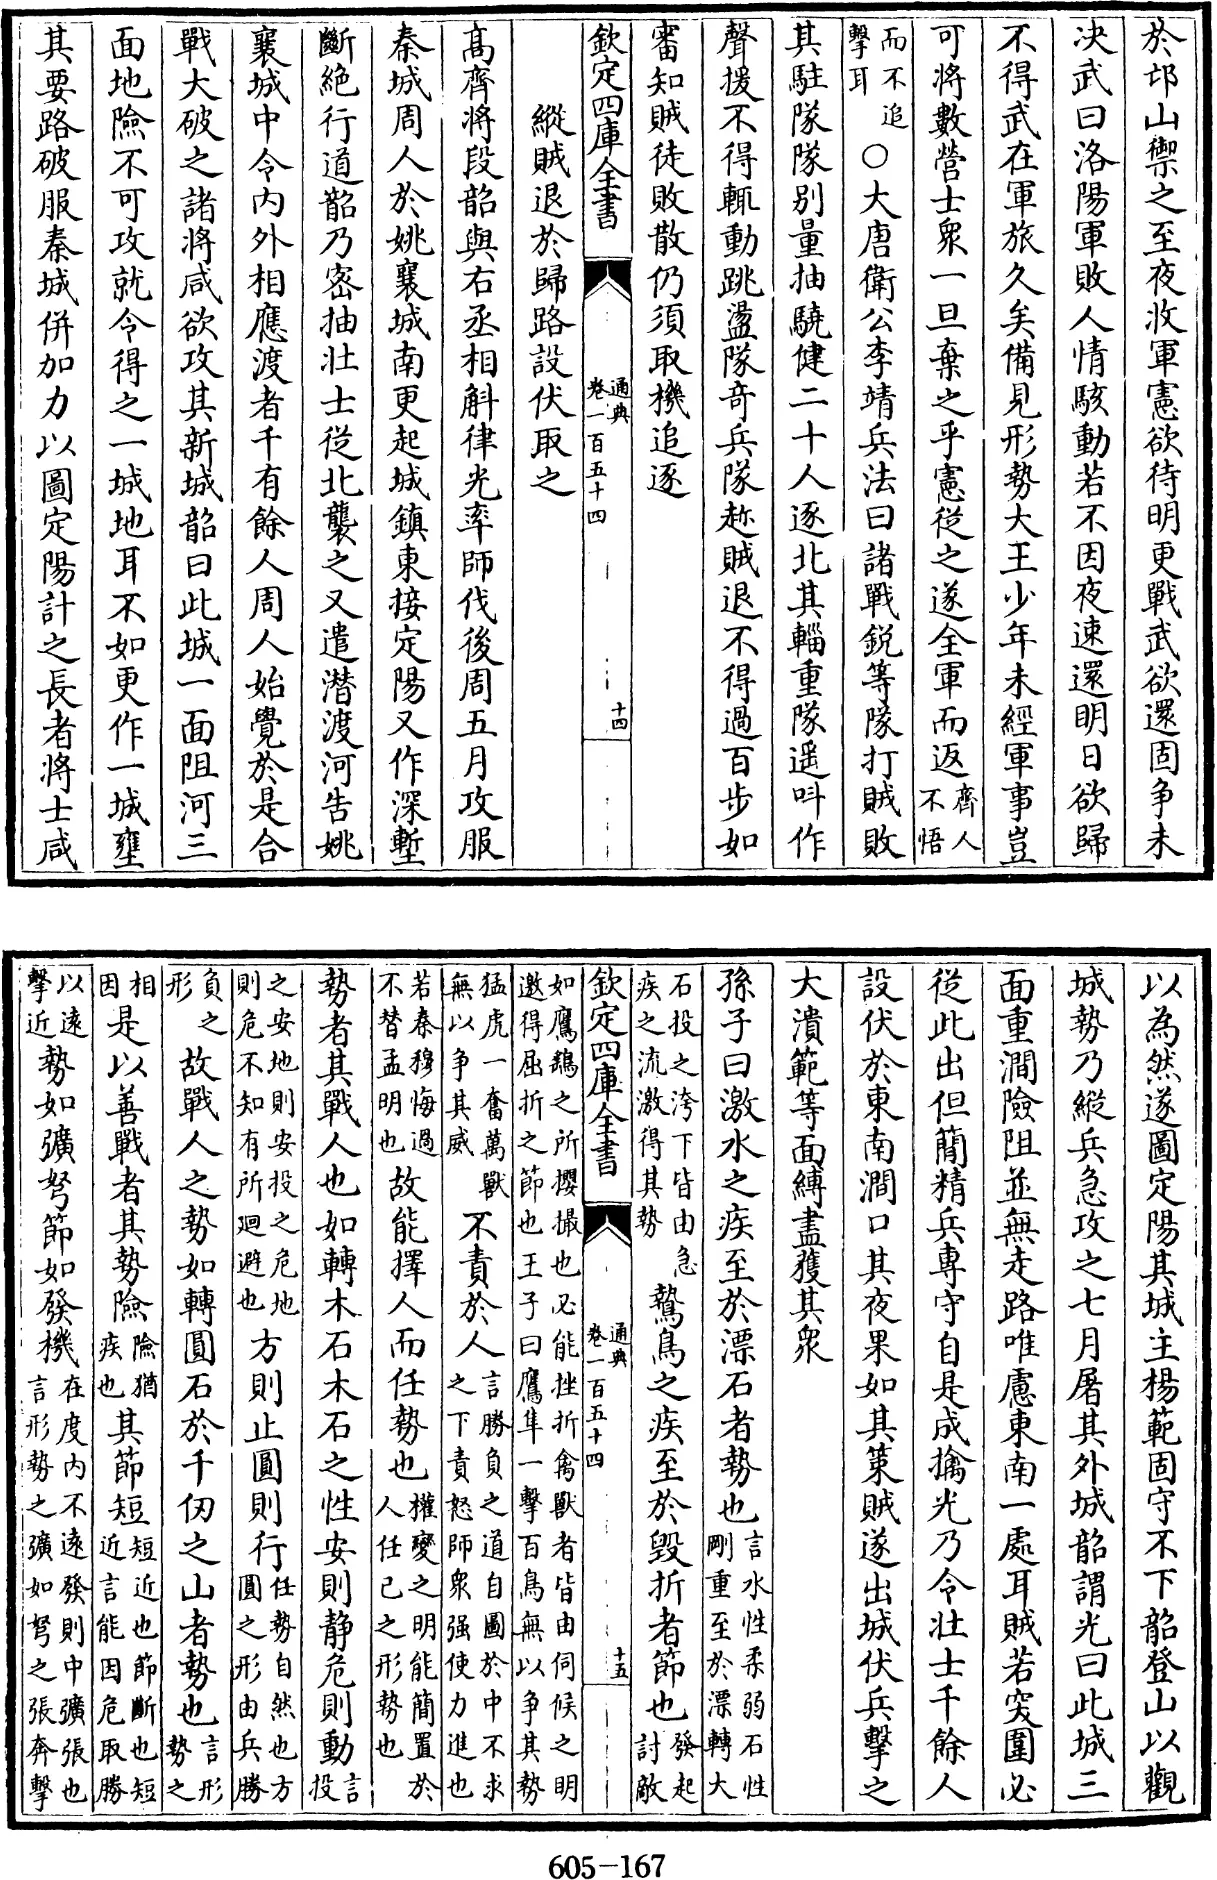 於邙山禦之至夜收軍憲欲待明更戰武欲還固争未
决武曰洛陽軍敗人情駭動若不因夜速還明日欲歸
不得武在軍旅久矣備見形勢大王少年未經軍事豈
可將數營士衆一旦棄之乎憲從之遂全軍而返齊人不悟
而不追擊耳○大唐衛公李靖兵法曰諸戰鋭等隊打賊敗
其駐隊隊别量抽驍健二十人逐北其輜重隊遥叫作
聲援不得輒動跳盪隊奇兵隊趂賊退不得過百步如
審知賊徒敗散仍須取機追逐
欽定四庫全書
通典
卷一百五十四
十四
縱賊退於歸路設伏取之
髙齊將段韶與右丞相斛律光率師伐後周五月攻服
秦城周人於姚襄城南更起城鎮東接定陽又作深塹
斷絶行道韶乃密抽壮士從北襲之又遣潜渡河告姚
襄城中令内外相應渡者千有餘人周人始覺於是合
戰大破之諸將咸欲攻其新城韶曰此城一面阻河三
面地險不可攻就令得之一城地耳不如更作一城壅
其要路破服秦城併加力以圖定陽計之長者將士咸
以為然遂圖定陽其城主楊範固守不下韶登山以觀
城勢乃縱兵急攻之七月屠其外城韶謂光曰此城三
面重澗險阻並無走路唯慮東南一處耳賊若突圍必
從此出但簡精兵專守自是成擒光乃令壮士千餘人
設伏於東南澗口其夜果如其策賊遂出城伏兵擊之
大潰範等面縛盡獲其衆
孫子曰激水之疾至於漂石者勢也言水性柔弱石性剛重至於漂轉大
石投之洿下皆由急疾之流激得其勢鷙鳥之疾至於毁折者節也發起討敵
欽定四庫全書
通典
卷一百五十四
十五
如鷹鷂之所攖撮也必能挫折禽獸者皆由伺候之明邀得屈折之節也王子曰鷹隼一擊百鳥無以争其勢
猛虎一奮萬獸無以争其威不責於人言勝負之道自圖於中不求之下責怒師衆强使力進也
若秦穆悔過不替孟明也故能擇人而任勢也權變之明能簡置於人任己之形勢也
勢者其戰人也如轉木石木石之性安則静危則動言投
之安地則安投之危地則危不知有所廻避也方則止圓則行任勢自然也方圓之形由兵勝
負之形故戰人之勢如轉圓石於千仞之山者勢也言形勢之
相因是以善戰者其勢險險猶疾也其節短短近也節斷也短近言能因危取勝
以遠擊近勢如彍弩節如發機在度内不遠發則中彍張也言形勢之彍如弩之張奔擊
605-167